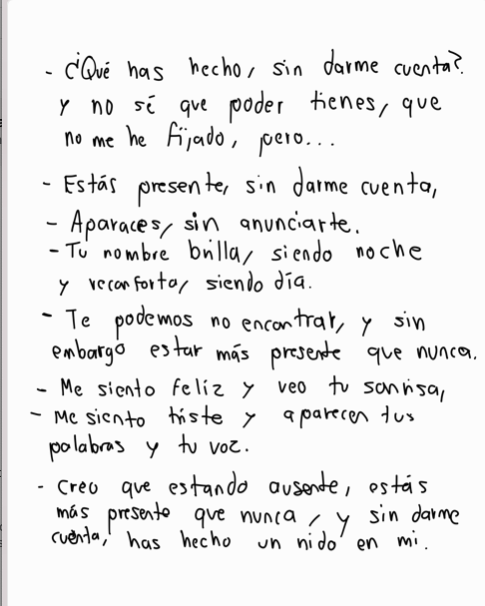 - ¿Qué has hecho, sin darme cuenta?
y no sé que poder tienes, que
no me he fijado, pero...
- Estás presente, sin darme cuenta,
- Aparaces, sin anunciarte.
- Tu nombre brilla, siendo noche
y reconforta, siendo día.
- Te podemos no encontrar, y sin
embargo estar más presente que nunca.
- Me siento feliz y veo tu sonrisa,
- Me siento triste y aparecen tus
palabras y tu voz.
- Creo que estando ausente, estás
más presente que nunca, y sin darme
cuenta, has hecho un nido en mi.